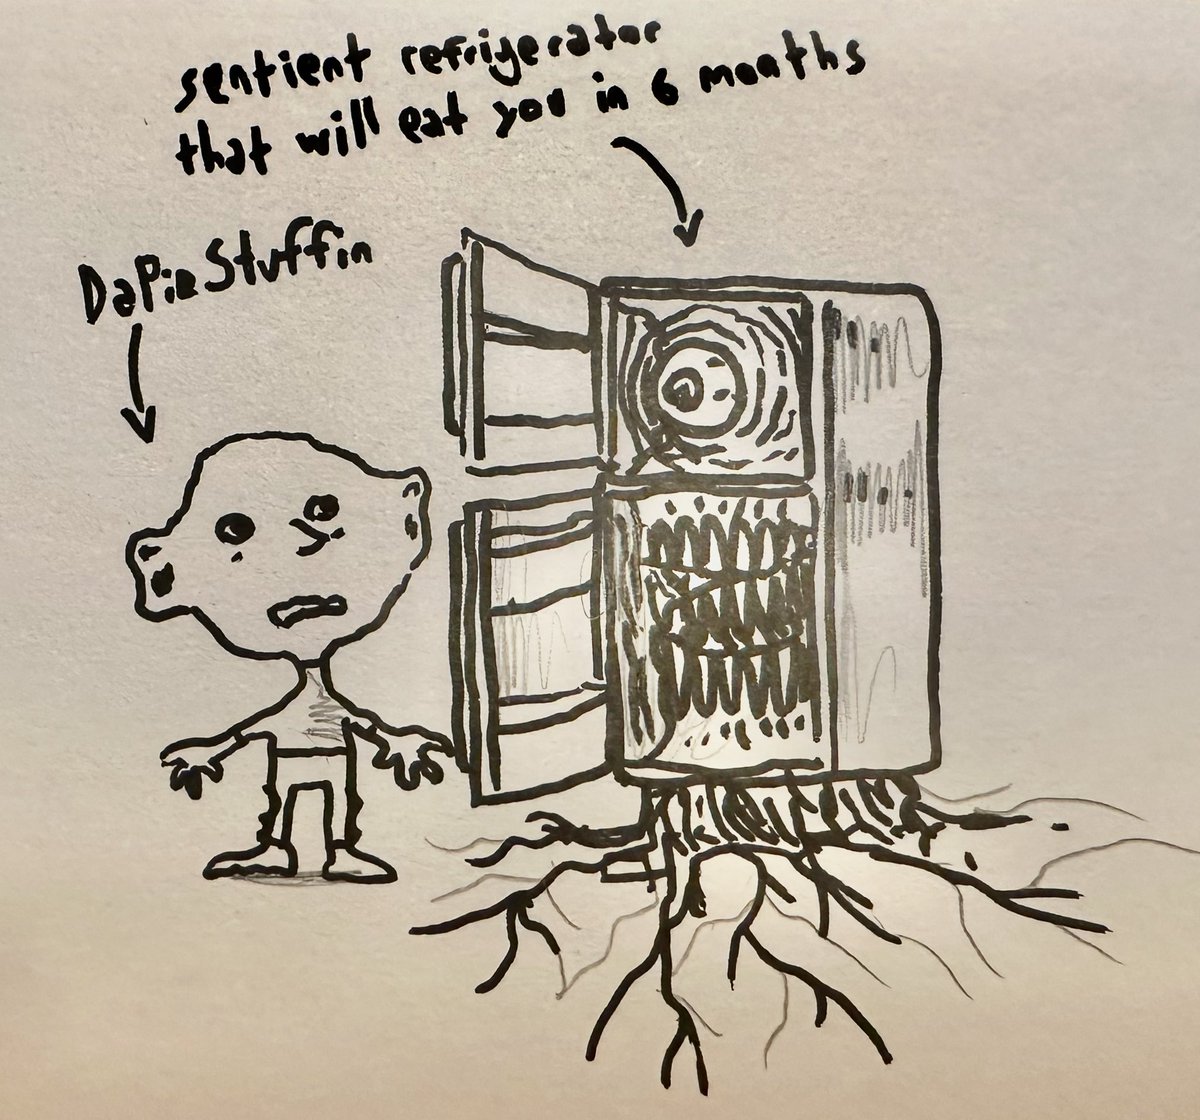 sentient refrigerator
that will eat you in 6 months
DaPieStuffin